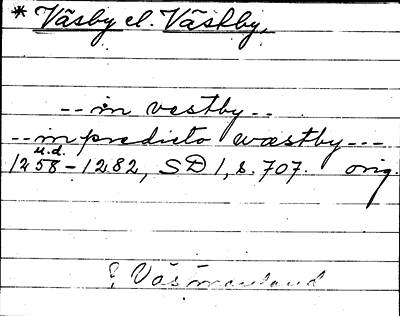 * Väsby el. Västby,
-- in vestby --
-- in predicto wæstby ---
u.d.
1258-1282, SD 1, s. 707. orig.
? Västmanland